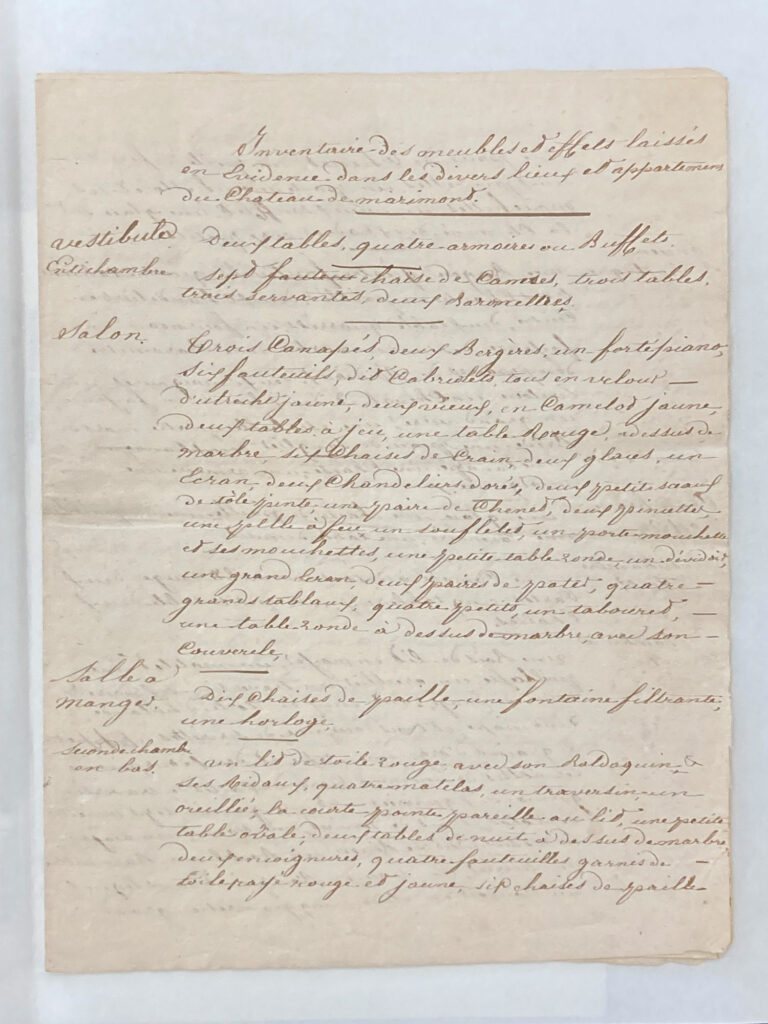 Inventaire des meubles et éffets laissés
en Evidence dans les divers lieux et appartemens
du Chateau de marimond.
vestibule
Deux tables, quatre armoires ou Buffets.
Entichambre
sept fauteux chaise de Cannes, trois tables,
trois servantes, deux
Salon.
Trois Canapés, deux Bergères, un fortépiano,
six fauteuils, dit Cabriolets, tous en velour —
d'utrecht jaune, deux vieux, en Camelot jaune,
deux tables à jeu, une table Rouge, dessus de
marbre, six Chaises de Crain, deux glaces, un
Ecran, deux Chandeliers dorés, deux petit seaux
de tôle peinte, une paire de Chenet, deux pincettes
une pelle à feu un soufflet, un porte mouchette
et ses mouchettes, une petite table ronde, un dévidoir,
un grand Ecran, deux paires de patet, quatre —
grands tablaux, quatre petits, un tabouret, —
une table ronde à dessus de marbre, avec son —
Couvercle,
Salle a
manger.
Dix Chaises de paille, une fontaine filtrante,
une horloge.
seconde chamb
en bas.
un lit de toile rouge avec son Baldaquin, &
ses Ridaux, quatre matelas, un traversin un
oreillié, la courte pointe pareille au lit, une petite
table ovale, deux tables de nuit à dessus de marbre
deux encoignures, quatre fauteuilles garnis de —
toile rayé rouge et jaune, six chaises de paille